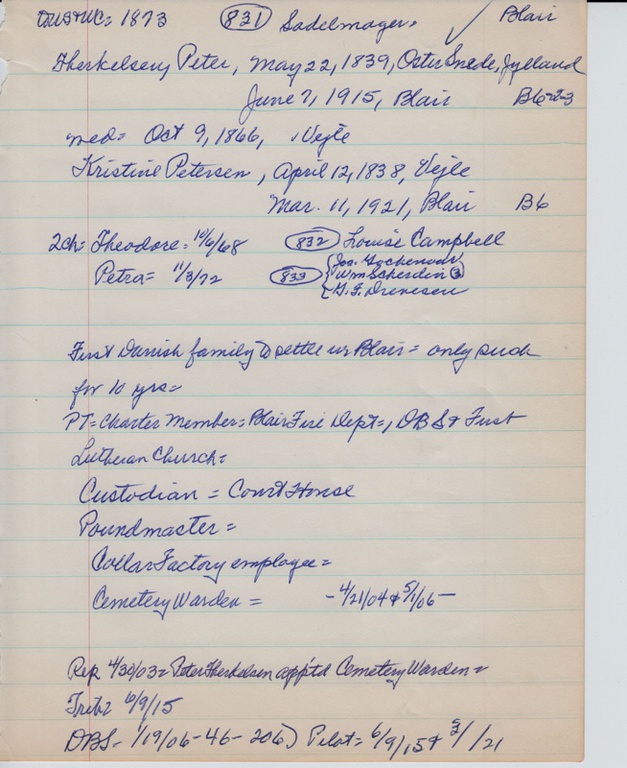 1873 (831) Sadelmager= ✓ Blair
Therkelsen, Peter, May 22, 1839, Oster Snede, Jylland
June 7, 1915, Blair B6-2-3
med= Oct 9, 1866, Vejle
Kristine Petersen, April 12, 1838, Vejle
Mar. 11, 1921, Blair B6
2ch= Theodore= 10/6/68 (832) Louise Campbell
Petra= 11/3/72 (833) { Jos.
Wm Scherdin (3)
G. F.
First Danish family to settle in Blair= only such
for 10 yrs=
PT= Charter Member= Blair Fire Dept=, DBS & First
Lutheran Church=
Custodian = Court House
Poundmaster =
Collar Factory employee=
Cemetery Warden = -4/21/04 & 5/1/06-
Rep 4/30/03= Peter Therkelsen app'td Cemetery Warden=
Trib= 6/9/15
DBS- 1/19/06-46-206) Pilot= 6/9/15 & /21